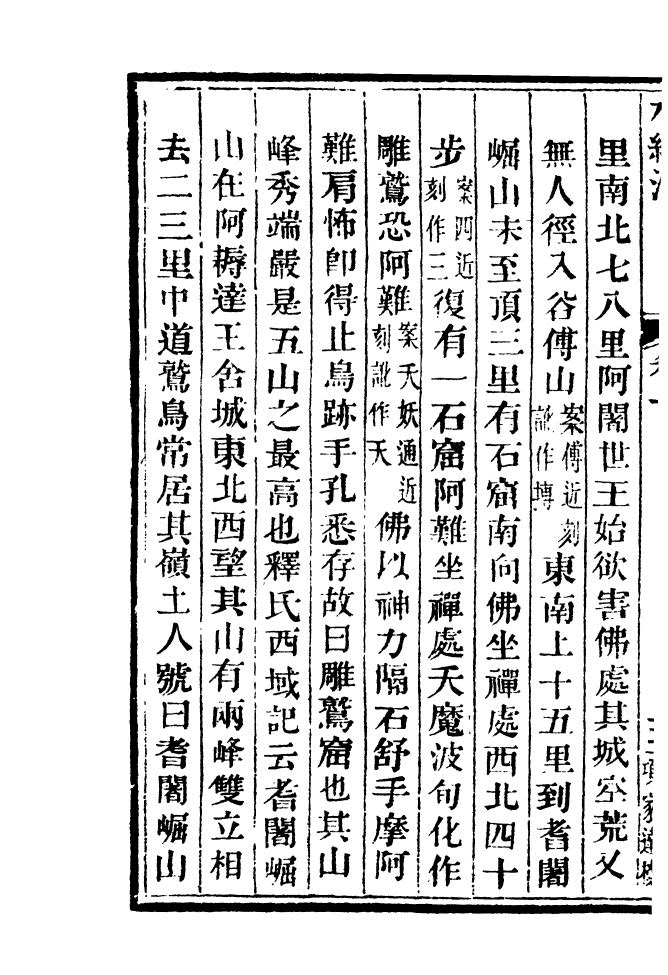 里南北七八里阿闍世王始欲害佛處其城空荒又
無人徑入谷傅山案傅近刻訛作摶東南上十五里到耆闍
崛山未至頂三里有石窟南向佛坐禪處西北四十
步案四近刻作三復有一石窟阿難坐禪處天魔波旬化作
雕鷲恐阿難案天妖通近刻訛作天佛以神力隔石舒手摩阿
難肩怖卽得止鳥跡手孔悉存故曰雕鷲窟也其山
峰秀端嚴是五山之最高也釋氏西域記云耆闍崛
山在阿耨達王舍城東北西望其山有兩峰雙立相
去二三里中道鷲鳥常居其嶺土人號曰耆闍崛山